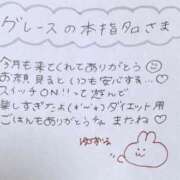 グレースの本指名さま
今月も来てくれてありがとう
お顔見るといつも安心する…♡
スイッチON!!って遊んで
楽しすぎたよ(*´`*)ダイエット用
ごはんもありがとうな またね♡